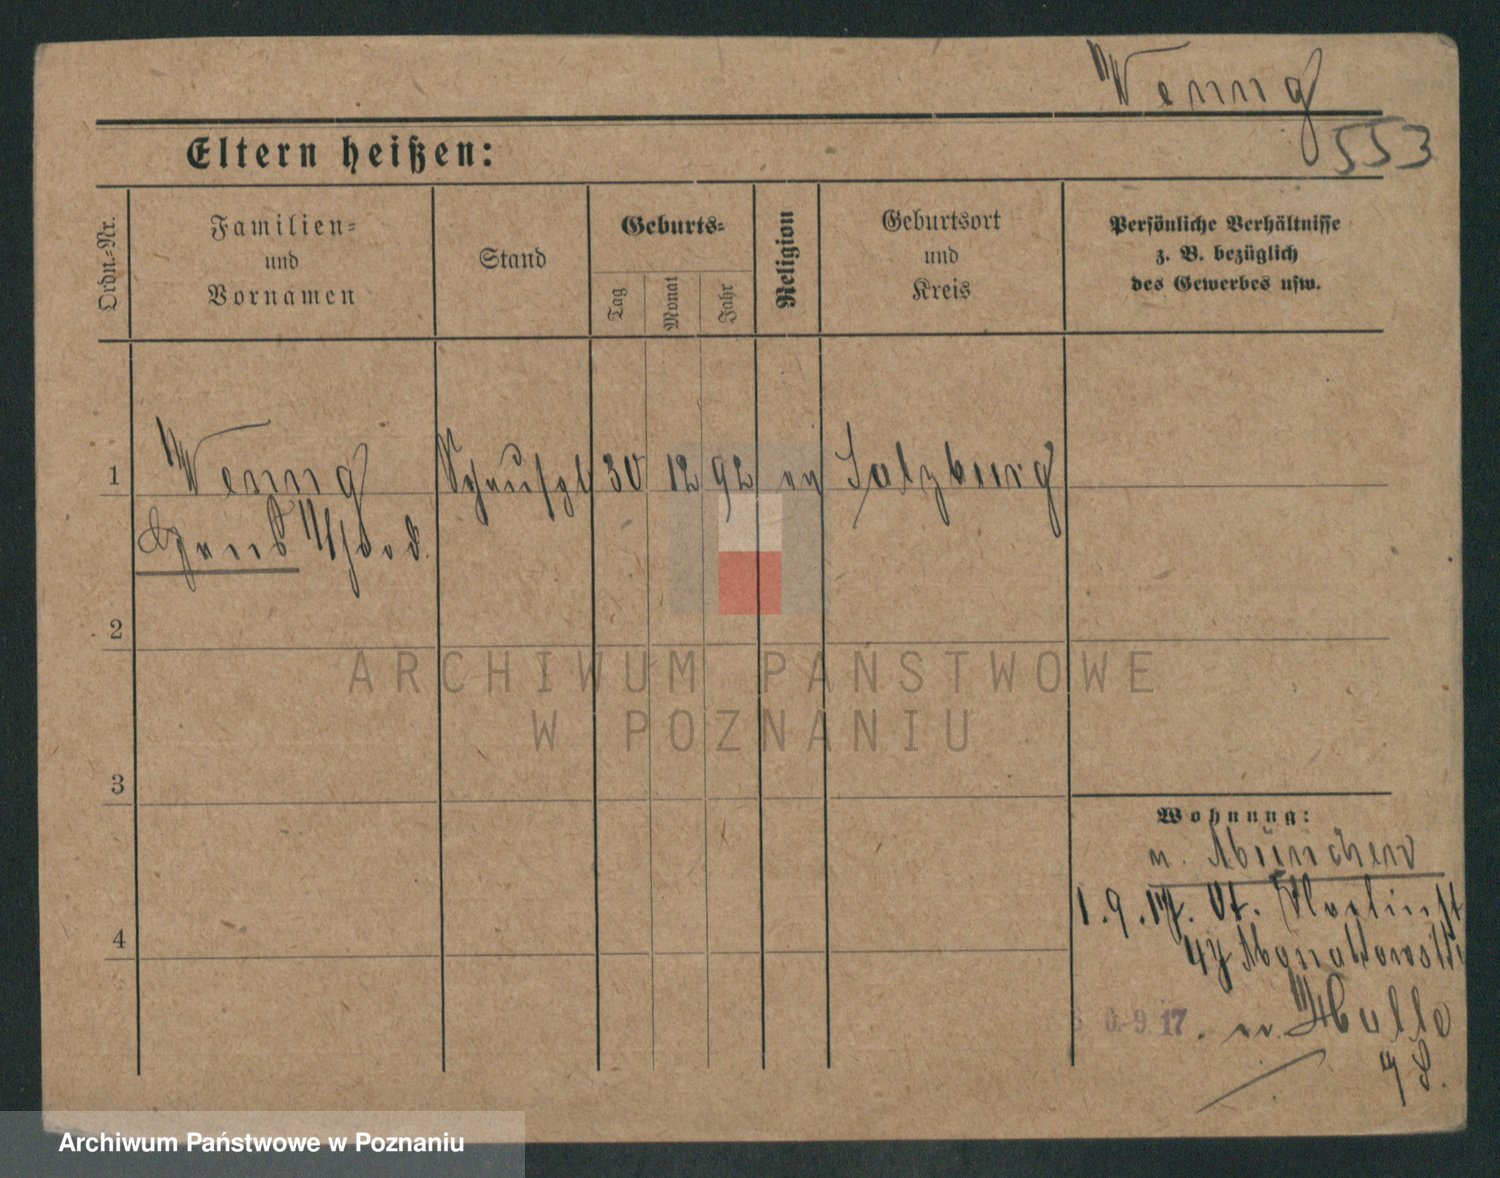 Wenng
553
Eltern heißen:
Ordn.-Nr.
Familien-
und
Vornamen
Stand
Geburts-
Tag
Monat
Jahr
Religion
Geburtsort
und
Kreis
Persönliche Verhältnisse
z. B. bezüglich
des Gewerbes usw.
1
Wenng
30 12 92
Salzburg
2
3
4
ARCHIWUM PAŃSTWOWE
W POZNANIU
Wohnung:
n. München
1.9.17. St. Martinst
47
0.9.17. n. Halle
Archiwum Państwowe w Poznaniu